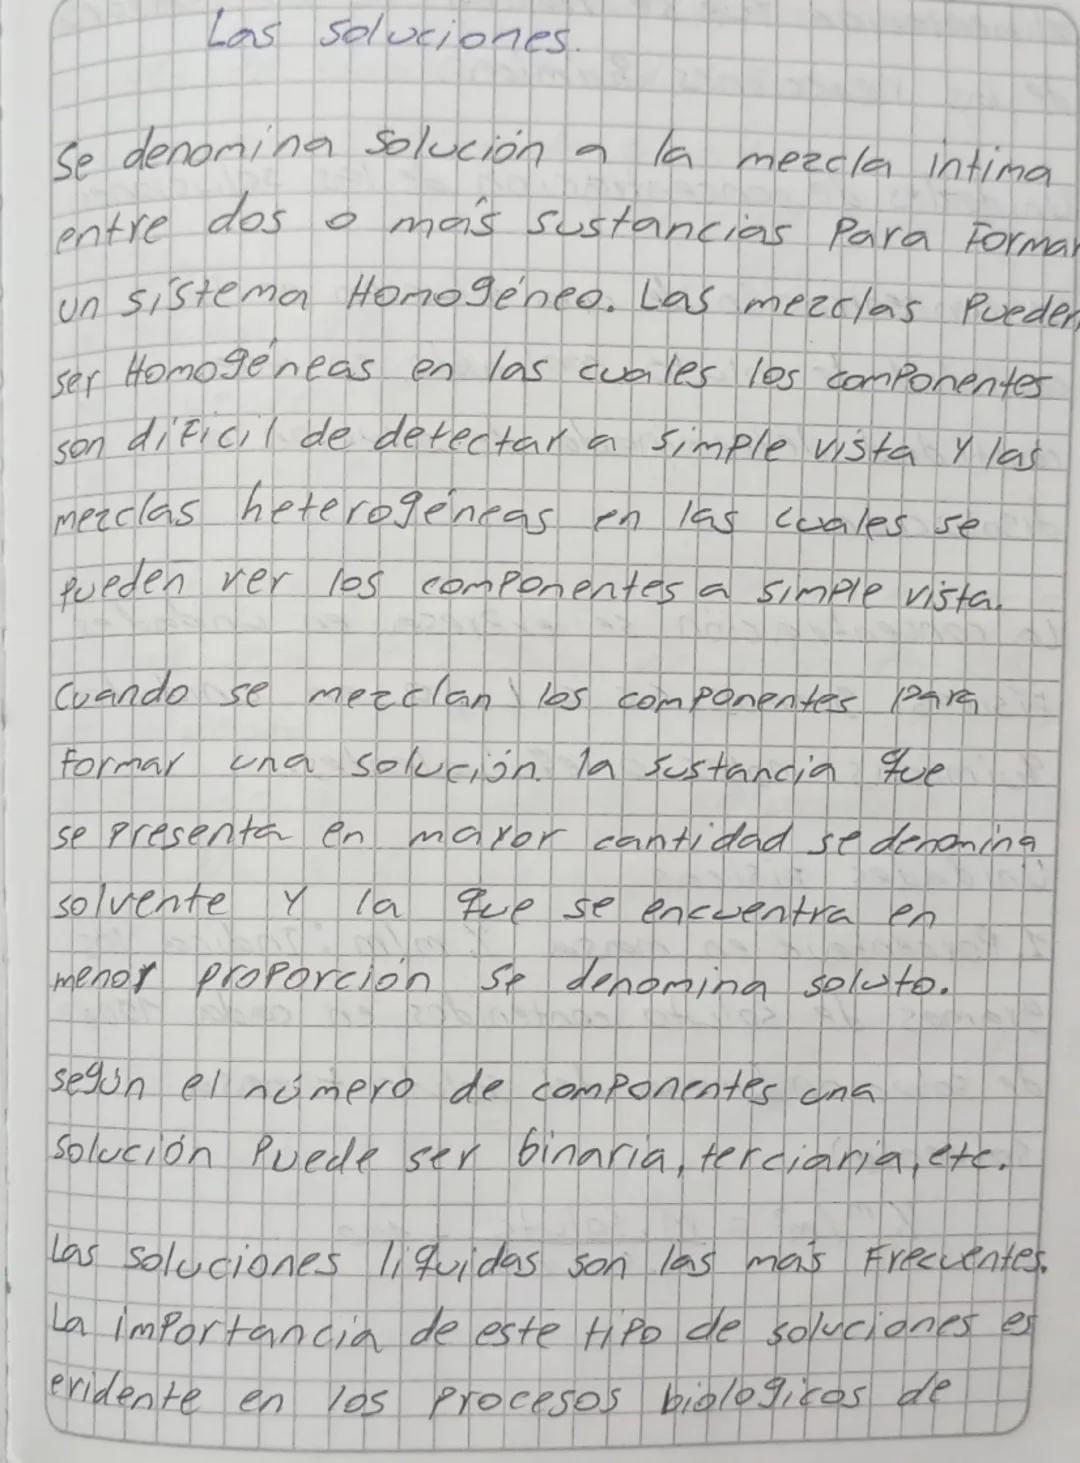 Las soluciones.
Se denomina solución a la mezcla íntima
entre dos o más sustancias Para Formar
un sistema Homogéneo. Las mezclas Pueden
ser Homogéneas en las cuales los componentes
son difícil de detectar a simple vista y las
mezclas heterogéneas en las cuales se
pueden ver los componentes a simple vista.
Cuando se mezclan los componentes para
formar una solución. la sustancia que
se presenta en mayor cantidad se denomina
solvente y la que se encuentra en
menor proporción se denomina soluto.
según el número de componentes una
solución Puede ser binaria, terciaria, etc.
Las soluciones líquidas son las más Frecuentes.
La importancia de este tipo de soluciones es
evidente en los procesos biologicos de